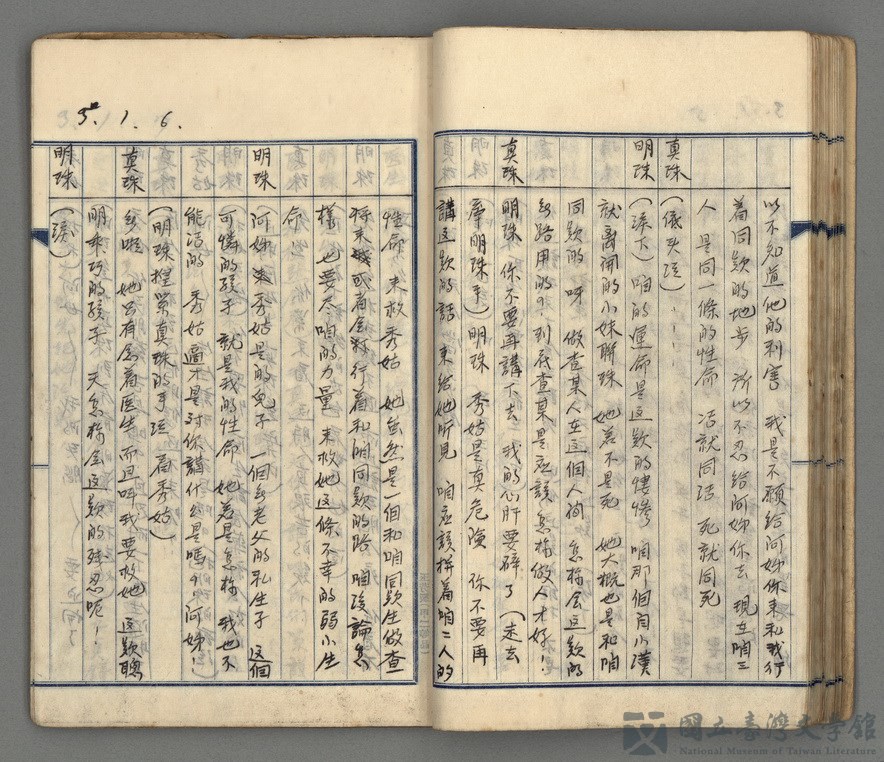 以不知道他的利害 我是不願給阿姊你来和我行
着同款的地步 所以不忍給阿姊你去 現在咱三
人 是同一條的性命 活就同活 死就同死
真珠 (低头泣)、、、、、
明珠 (淚下)咱的運命是這款的悽慘 咱那個自小漢
就离開的小妹聯珠 她若不是死 她大概也是和咱
同款的 呀 做查某人在這個人間 怎樣会這款的
無路用的?到底查某是应該怎樣做人才好!
真珠 明珠 你不要再講下去 我的心肝要碎了(走去
牽明珠手)明珠 秀姑是真危險 你不要再
講這款的話 来給她听見 咱应該拼着咱二人的
5. 1. 6.
性命 来救秀姑 她虽然是一個和咱同款生做查
将来或者会行着和咱同款的路 咱沒論怎
樣 也要尽咱的力量 来救她這條不幸的弱小生
命
明珠 (阿姊 秀姑是的兒子 一個無老父的私生子 這個
可憐的孩子 就是我的性命 她若是怎樣 我也不
能活的 秀姑 逼才是对你講什么是嗎?阿姊!
(明珠握緊真珠的手泣 看秀姑)
真珠 無啦 她只有念着医生 而且叫我要救她 這款聰
明乖巧的孩子 天怎樣会這款的残忍呢!
明珠 (淚)
國立臺灣文學館
National Museum of Taiwan Literature